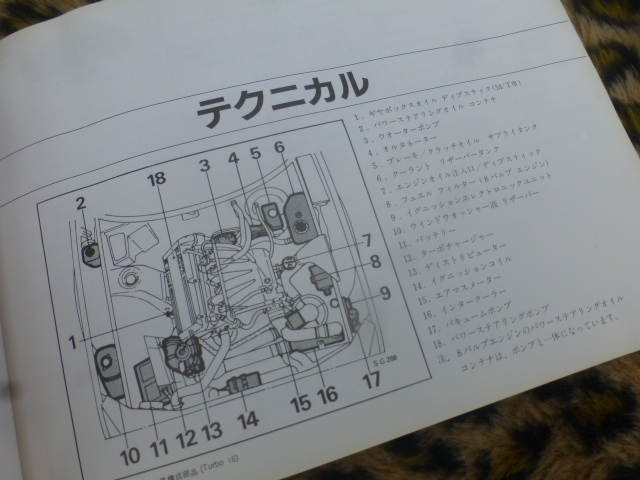 テクニカル
1. ギヤボックスオイル ディプスティク(M/T車)
2. パワーステアリングオイル コンテナ
3. ウオーターポンプ
4. オルタネーター
5. ブレーキ/クラッチオイル サプライタンク
6. クーラント リザーバータンク
7. エンジンオイル注入口/ディプスティック
8. フュエル フィルター(8バルブ エンジン)
9. イグニッションエレクトロニックユニット
10. ウインドウオッシャー液 リザーバー
11. バッテリー
12. ターボチャージャー
13. ディストリビューター
14. イグニッションコイル
15. エアマスメーター
16. インタークーラー
17. バキュームポンプ
18. パワーステアリングポンプ
注. 8バルブエンジンのパワーステアリングオイル
コンテナは、ポンプと一体になっています。
2
18
3
4
5
6
7
8
9
1
S G 288
10
11
12
13
14
15
16
17
構成部品 (Turbo 16)